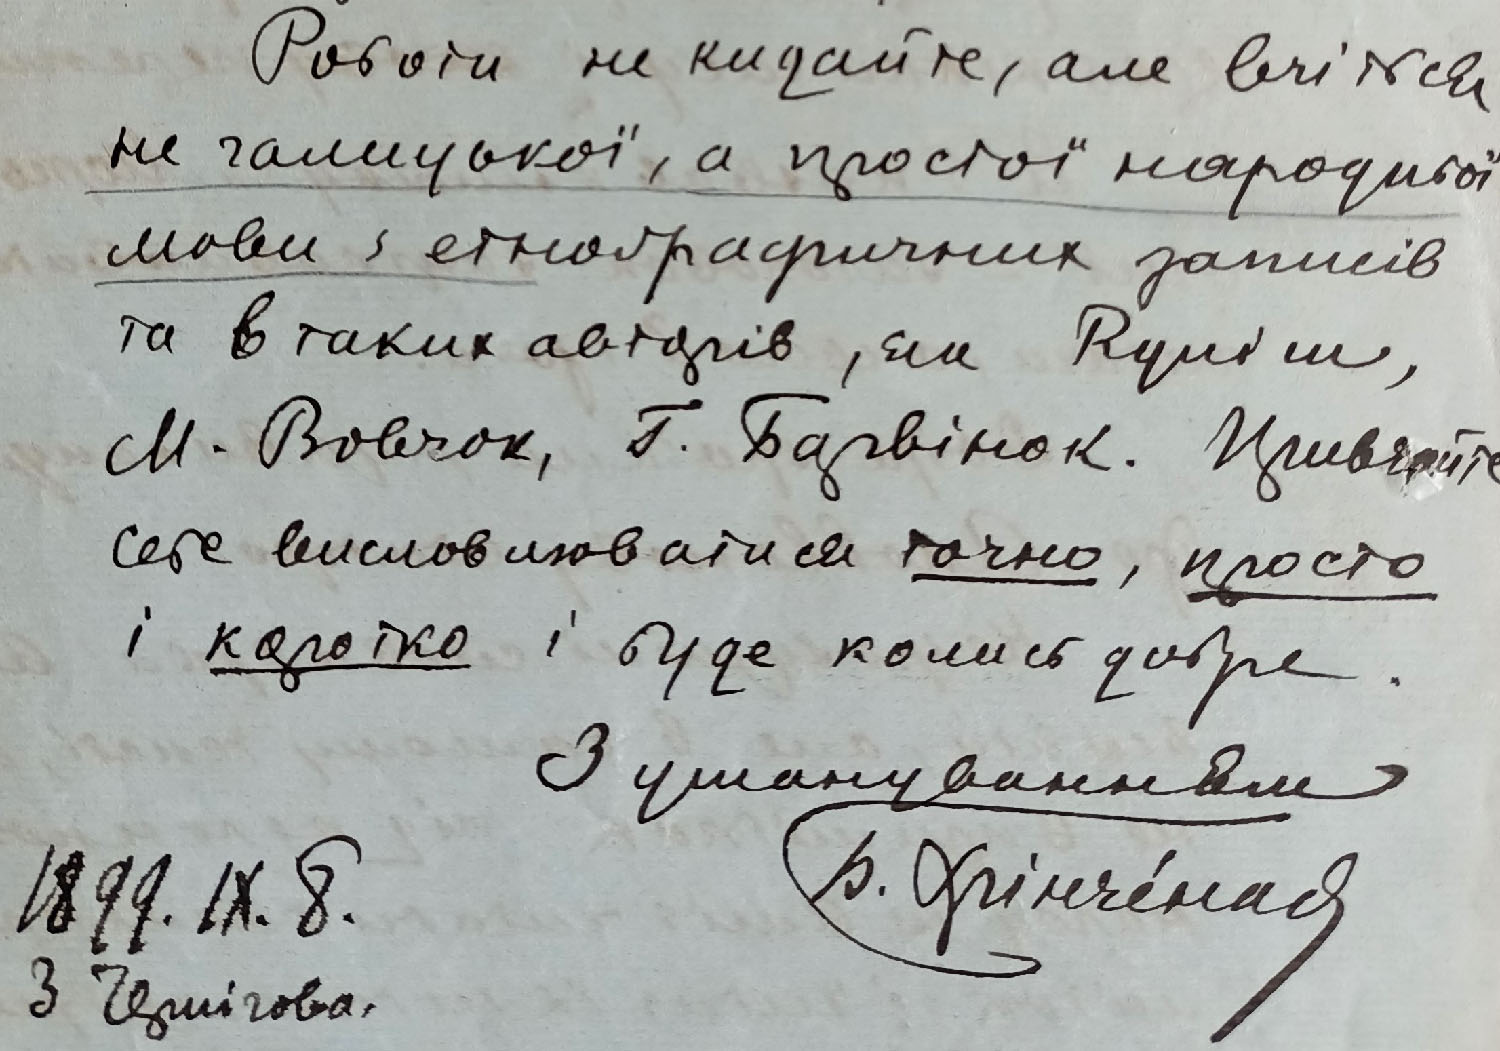 Роботи не кидайте, але вчіться
не галицької, а простої народньої
мови з етнографичних записів
та в таких авторів, як Куліш,
М. Вовчок, Г. Барвінок. Привчайте
себе висловлюватися точно, просто
і коротко і буде колись добре.
З ушануваннєм
Б. Грінченко
1899. IX. 8.
З Чернігова.